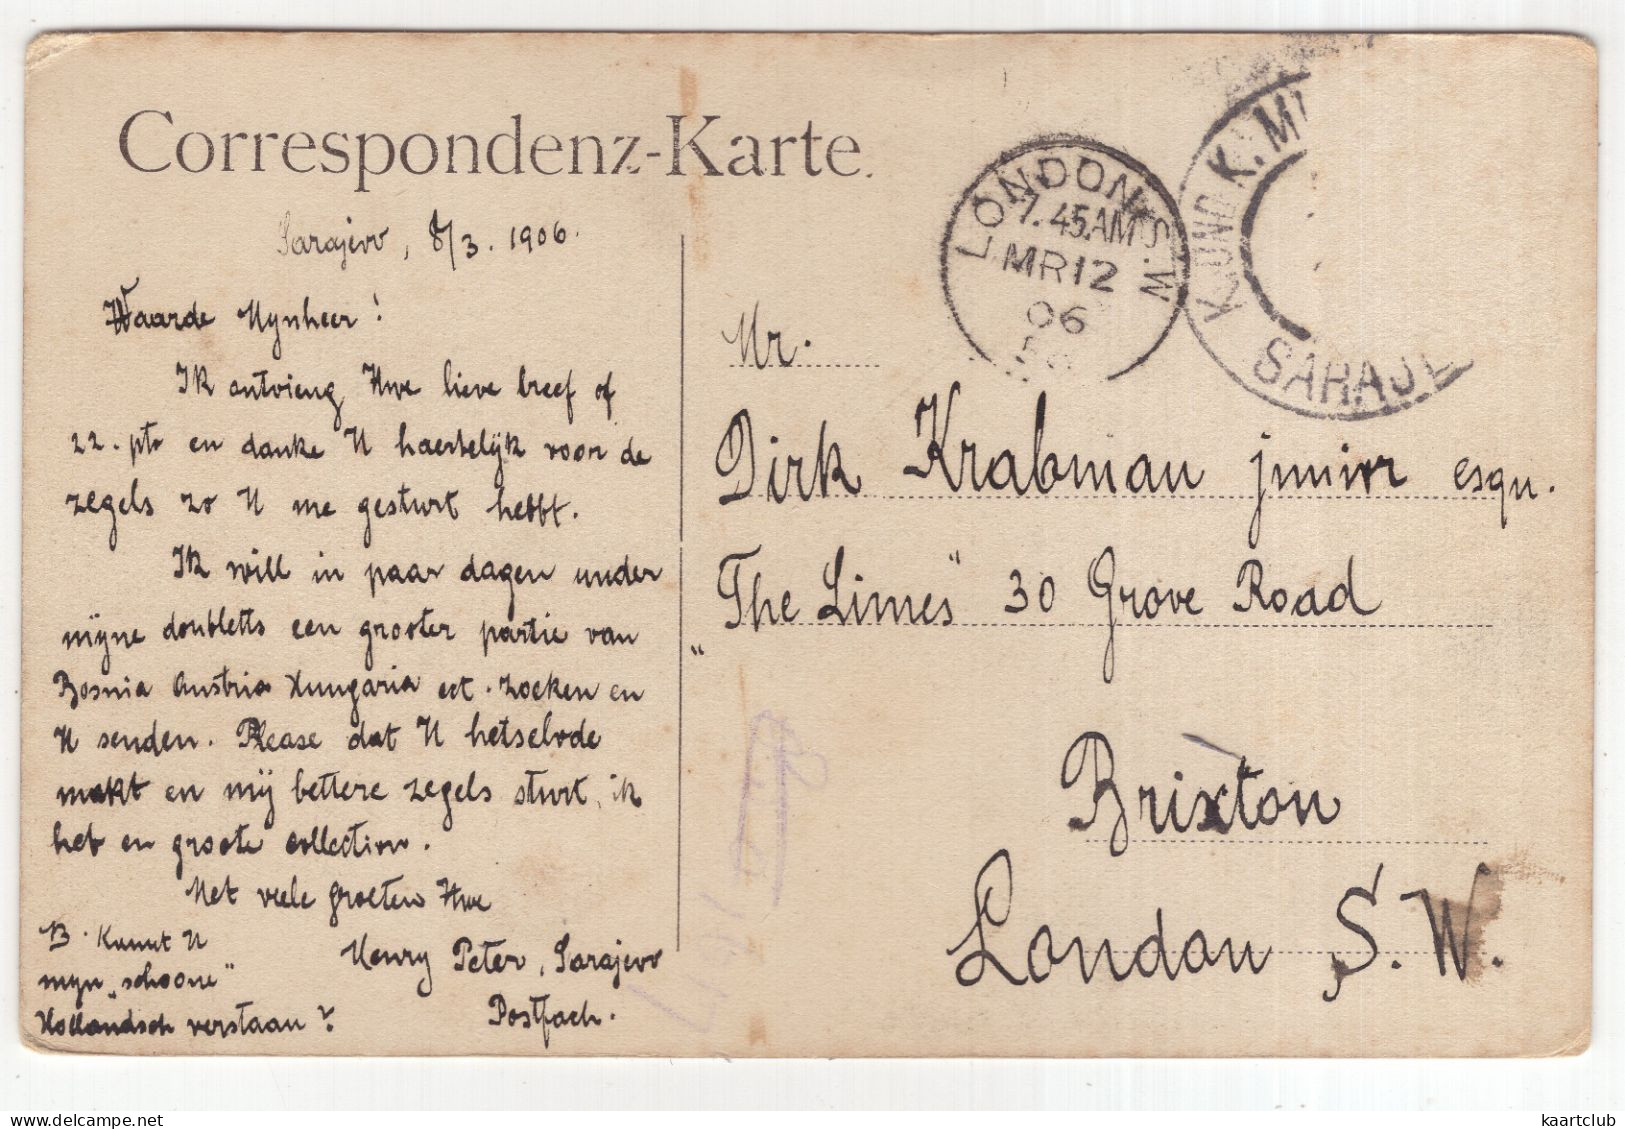 Correspondenz-Karte.
Sarajevo, 8/3. 1906.
Waarde Mynheer!
Ik ontvieng Uwe lieve breef of
22. pto en danke U haertelijk voor de
zegels zo U me gesturt hebbt.
Ik will in paar dagen under
mijne doubletts een grooter partie van
Bosnia Austria Hungaria ect. zoeken en
U senden. Please dat U hetselvde
makt en mij bettere zegels sturt, ik
heb en groote collection.
Met veele groeten Uwe
Henry Peter, Sarajevo
Postfach.
B. Kunnt U
myn „schoone"
Hollandsch verstaan?
LONDON S.W.
7.45.AM
MR12
06
K.UND K. MI
SARAJE
Mr.
Dirk Krabman junior esqu.
„The Limes" 30 Grove Road
Brixton
London S.W.
kaartclub